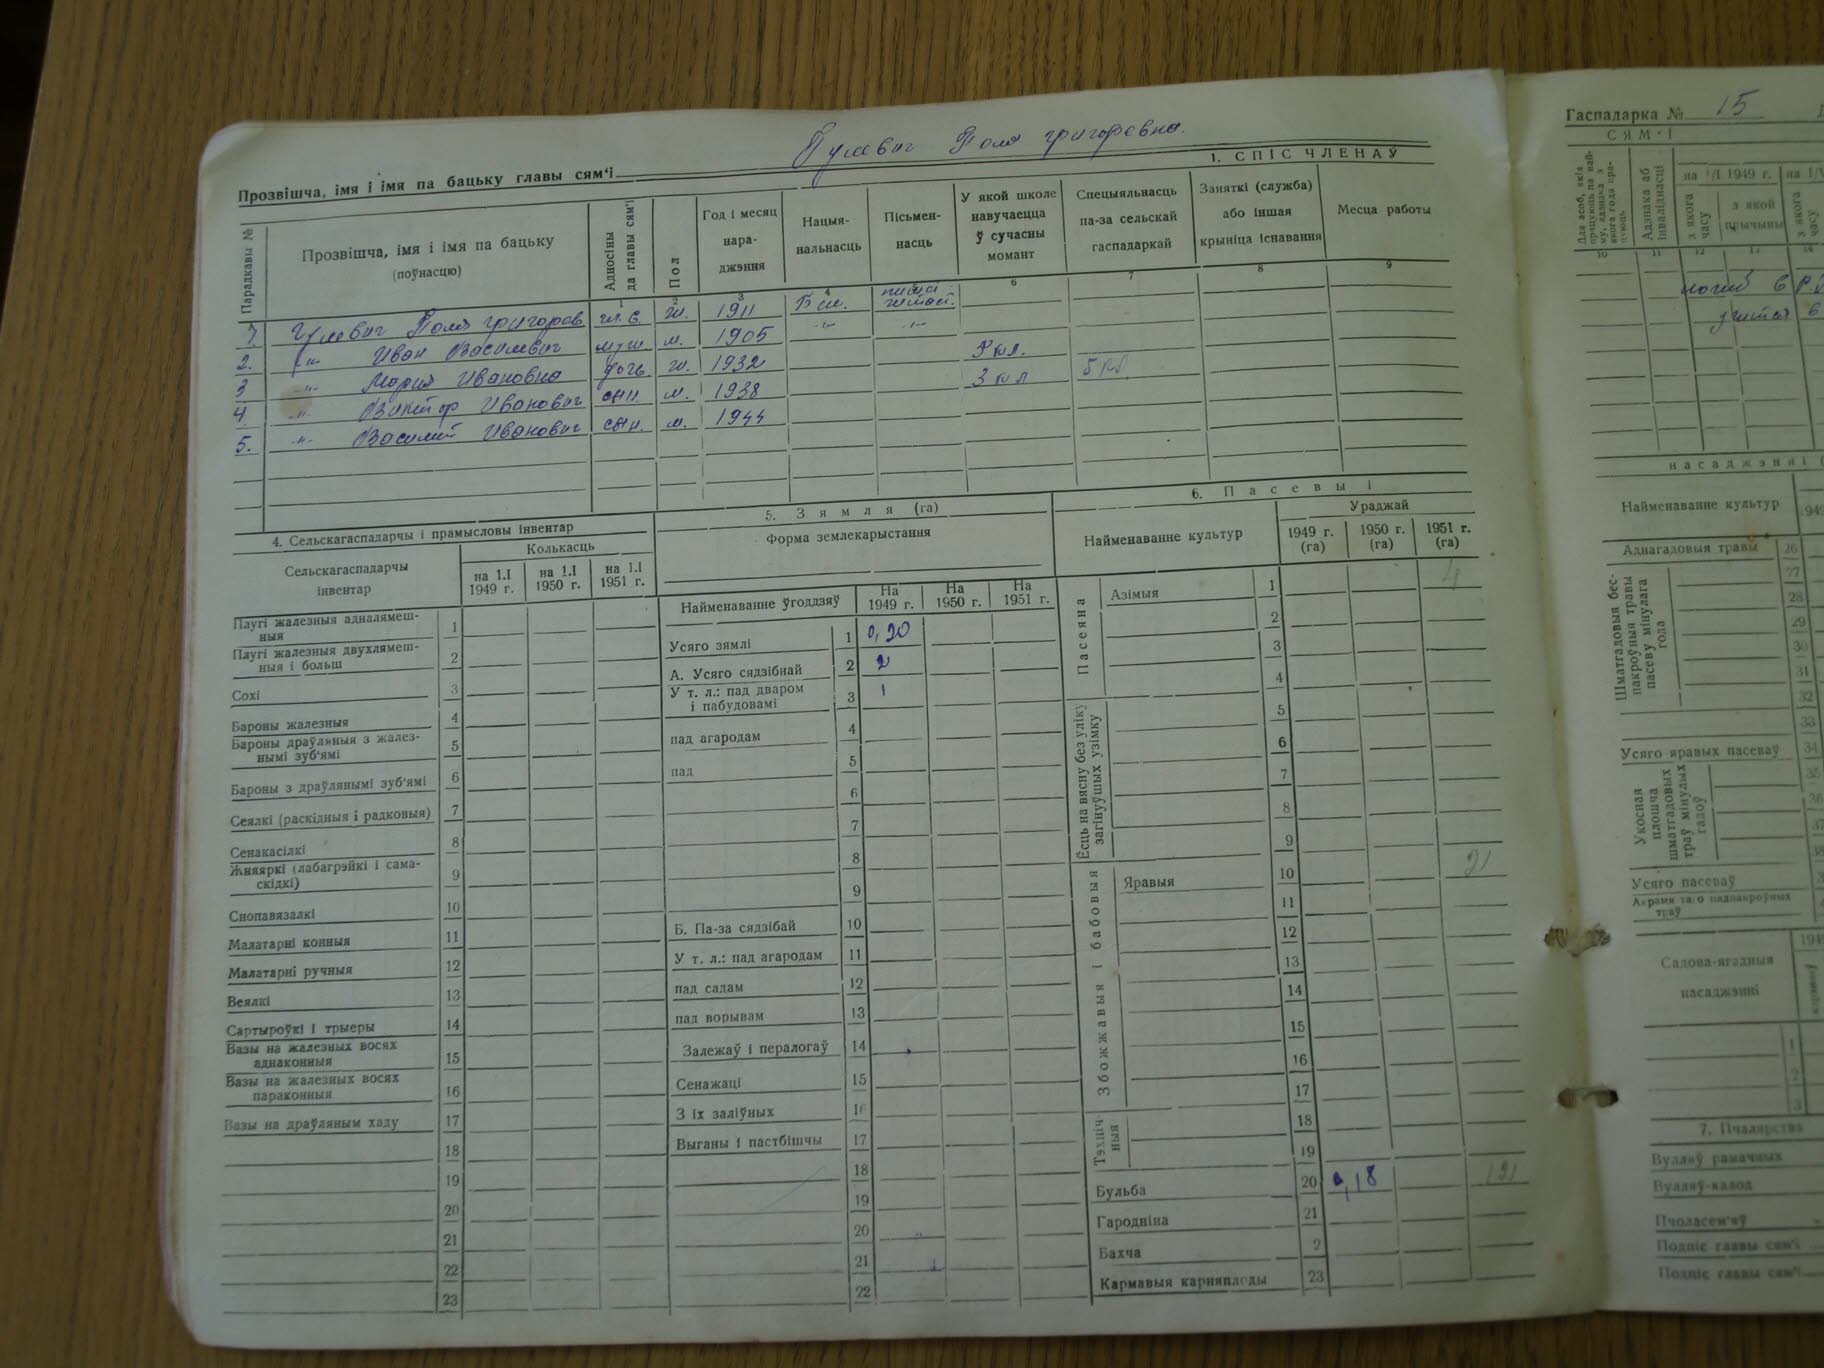 Гулевич Поля григоревна.
Прозвішча, імя і імя па бацьку главы сям‘і
1. СПІС ЧЛЕНАЎ
Парадкавы №
Прозвішча, імя і імя па бацьку
(поўнасцю)
Адносіны да главы сям‘і
Пол
Год і месяц нараджэння
Нацыянальнасць
Пісьменнасць
У якой школе навучаецца ў сучасны момант
Спецыяльнасць па-за сельскай гаспадаркай
Заняткі (служба) або іншая крыніца існавання
Месца работы
1 2 3 4 5 6 7 8 9
1. Гулевич Поля григорев гл. с. ж. 1911 Бел.
2. -"- Иван Василевич муж м. 1905 -"- -"-
3 -"- Мария Ивановна дочь ж. 1932 7 кл.
4 -"- Виктор Иванович сын. м. 1938 3 кл 5 кл.
5. -"- Василий Иванович сын. м. 1944
4. Сельскагаспадарчы і прамысловы інвентар
Сельскагаспадарчы інвентар
Колькасць
на 1.I 1949 г.
на 1.I 1950 г.
на 1.I 1951 г.
Плугі жалезныя адналямешныя 1
Плугі жалезныя двухлямешныя і больш 2
Сохі 3
Бароны жалезныя 4
Бароны драўляныя з жалезнымі зуб‘ямі 5
Бароны з драўлянымі зуб‘ямі 6
Сеялкі (раскідныя і радковыя) 7
Сенакасілкі 8
Жняяркі (лабагрэйкі і самаскідкі) 9
Снопавязалкі 10
Малатарні конныя 11
Малатарні ручныя 12
Веялкі 13
Сартыроўкі і трыеры 14
Вазы на жалезных восях аднаконныя 15
Вазы на жалезных восях параконныя 16
Вазы на драўляным хаду 17
18
19
20
21
22
23
5. Зямля (га)
Форма землекарыстання
Найменаванне ўгоддзяў
На 1949 г.
На 1950 г.
На 1951 г.
Усяго зямлі 1 0,20
А. Усяго сядзібнай 2 2
У т. л.: пад дваром і пабудовамі 3 1
пад агародам 4
пад 5
6
7
8
9
Б. Па-за сядзібай 10
У т. л.: пад агародам 11
пад садам 12
пад ворывам 13
Залежаў і пералогаў 14
Сенажаці 15
З іх заліўных 16
Выганы і пастбішчы 17
18
19
20
21
22
6. Пасевы і
Найменаванне культур
Ураджай
1949 г. (га)
1950 г. (га)
1951 г. (га)
Пасеяна
Азімыя 1
2
3
4
Ёсць на вясну без уліку загінуўшых узімку
5
6
7
8
9
Збожжавыя і бабовыя
Яравыя 10 21
11
12
13
14
15
16
17
Тэхнічныя
18
19
Бульба 20 0,18
Гародніна 21
Бахча 2
Кармавыя карняплоды 23
Гаспадарка № 15
СЯМ‘І
Для асоб, якія працуюць па найму, адзнака з якога года працуюць
Адзнака аб інваліднасці
на 1/I 1949 г.
з якога часу
з якой прычыны
з якога часу
10 11 12 13 14
учится в
насаджэнні (
Найменаванне культур
Аднагадовыя травы 26
Шматгадовыя беспакроўныя травы пасеву мінулага года
27
28
29
30
31
32
33
Усяго яравых пасеваў 34
Укосная плошча шматгадовых траў мінулых гадоў
35
36
37
38
Усяго пасеваў
Акрамя таго падпакроўных траў
Садова-ягадныя насаджэнні
1
2
3
7. Пчалярства
Вуллёў рамачных
Вуллёў-калод
Пчоласем‘яў
Подпіс главы сям‘і
Подпіс главы сям‘і